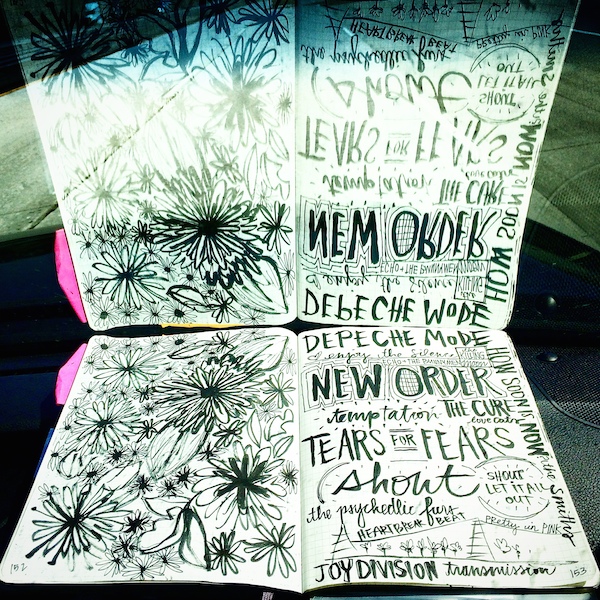 DEPECHE MODE
enjoy the Silence
ECHO + THE BUNNYMEN
KILLING
NEW ORDER
temptation THE CURE
love cats
TEARS FOR FEARS
shout
SHOUT
LET IT ALL
OUT
the psychedlic furs
HEARTBREAK BEAT
pretty in PINK
JOY DIVISION transmission
HOW SOON IS NOW the Smiths
152
153